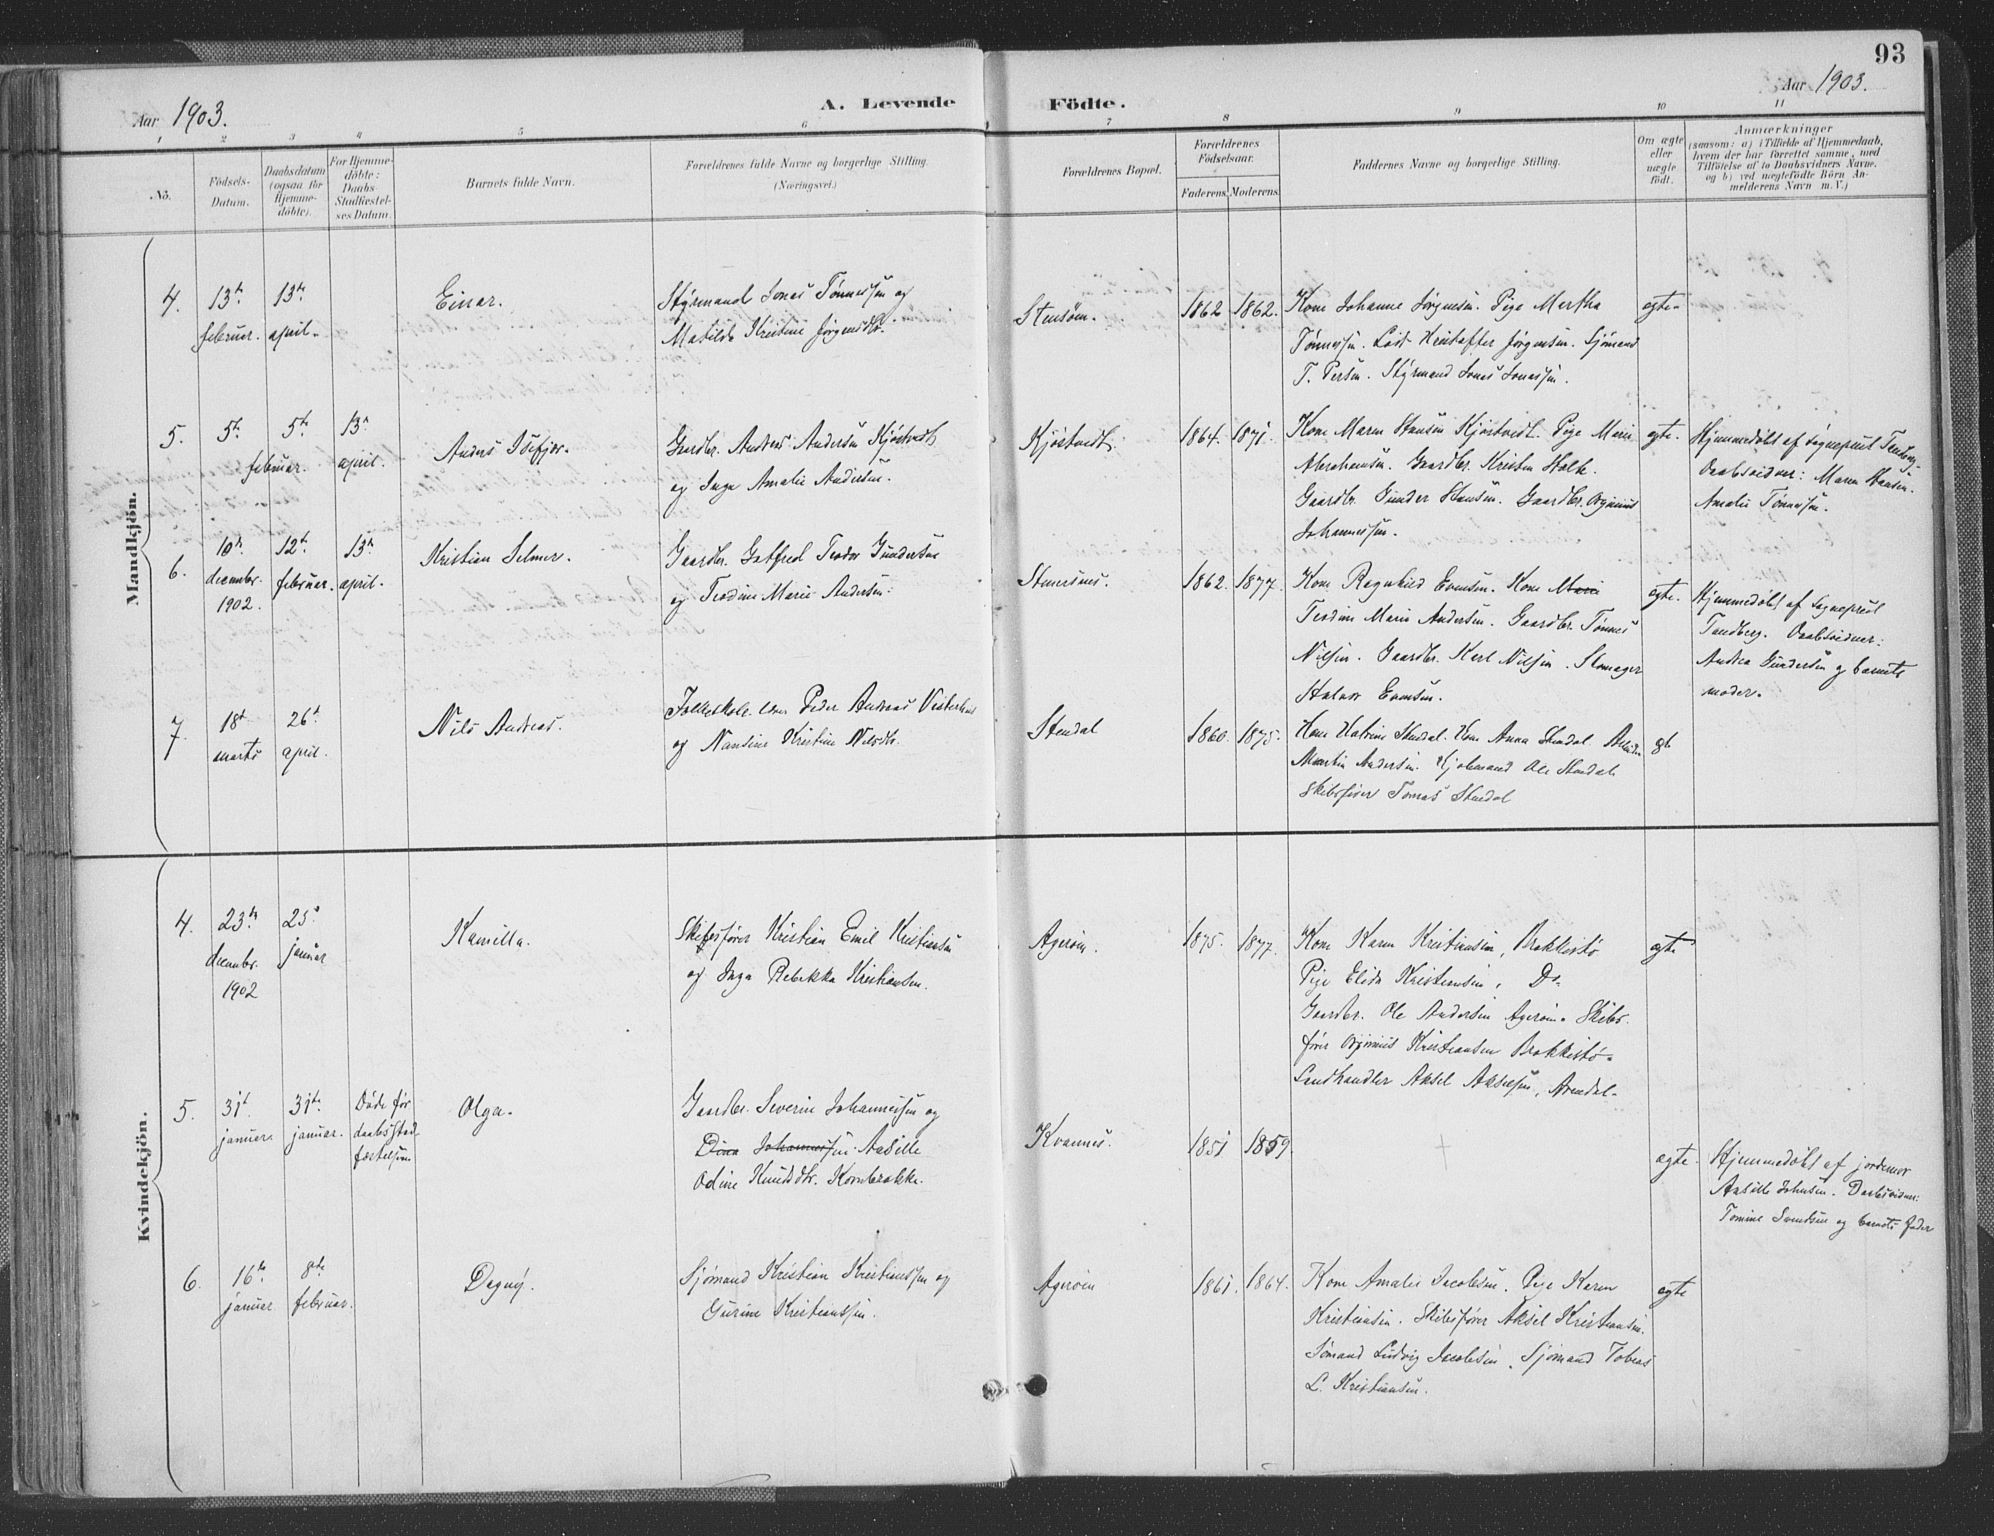 93
Aar 1903.
A. Levende Födte.
Aar 1903.
1 2 3 4 5 6 7 8 9 10 11
No.
Födsels-
Datum.
Daabsdatum
(ogsaa for
Hjemme-
döbte).
For Hjemme-
döbte:
Daabs-
Stadfæstel-
ses Datum.
Barnets fulde Navn.
Forældrenes fulde Navne og borgerlige Stilling.
(Næringsvei.)
Forældrenes Bopæl.
Forældrenes
Födselsaar.
Faderens. Moderens.
Faddernes Navne og borgerlige Stilling.
Om ægte
eller
uægte
födt.
Anmærkninger
(saasom: a) i Tilfælde af Hjemmedaab,
hvem der har forrettet samme, med
Tilföielse af to Daabsvidners Navne.
og b) ved uægtefödte Börn An-
melderens Navn m. V.)
Mandkjön.
4. 13de februar. 13de april.
Einar.
Styrmand Jonas Tønnessen og
Matilde Kristine Jørgensdtr.
Stensøen.
1862 1862.
Kone Johanne Jørgensen. Pige Martha
Tønnessen. Lods Kristoffer Jørgensen. Sjømand
T. Persen. Styrmand Jonas Jonassen.
ægte.
5. 5te 5te februar. 13de april.
Anders Isefjær.
Gaardbr. Andreas Andersen Kjøstvedt
og Inga Amalie Andersen.
Kjøstvedt.
1864. 1871.
Kone Maren Hansen Kjøstvedt. Pige Marie
Abrahamsen. Gaardbr. Kristen Holte.
Gaardbr. Gunder Hansen. Gaardbr.
Johannessen.
ægte.
Hjemmedøbt af sogneprest Tandberg.
Daabsvidner: Maren Hansen.
Amalie Tønnessen.
6. 10de decembr. 1902. 12te februar. 13de april.
Kristian Selmer.
Gaardbr. Gotfred Teodor Gundersen
og Teodine Marie Andersen.
Stenersnes.
1862. 1877.
Kone Ragnhild Evensen. Kone Marie
Teodine Marie Andersen. Gaardbr. Tønnes
Nilsen. Gaardbr. Karl Nilsen. Skomager
Halvor Evensen.
ægte.
Hjemmedøbt af sogneprest
Tandberg. Daabsvidner:
Andrea Gundersen og barnets
moder.
7. 18de marts 26de april.
Nils Andreas.
Folkeskolelærer Peder Andreas Vesterhus
og Nansine Kristine Nilsdtr.
Stendal
1860. 1875.
Kone Katrine Stendal. Kone Anna Stendal. Arbeider
Martin Andersen. Ole Stendal.
Skibsfører Tomas Stendal
Kvindekjön.
4. 23de decembr. 1902 25de januar
Kamilla.
Skibsfører Kristian Emil Kristiansen
og Inga Rebekka Kristiansen.
Agerøen.
1875. 1877.
Kone Karen Kristiansen, Brækkestø
Pige Elida Kristiansen, Do.
Gaardbr. Ole Andersen Agerøen. Skibs-
fører Kristiansen Brækkestø.
Landhandler Aksel Akselsen, Arendal.
ægte
5. 31te januar. 31te januar. Døde før
daabsstad-
fæstelsen
Olga.
Gaardbr. Severin Johannessen og
Dina Johannessen. Aasille
Odine Knudsdtr. Kornbrække.
Kvannes.
1851 1859.
+
ægte.
Hjemmedøbt af jordemor
Aasille Johnsen. Daabsvidner:
Tomine Svendsen og barnets fader
6. 16de januar. 8de februar.
Dagny.
Sjømand Kristian Kristianssen og
Gurine Kristianssen.
Agerøen
1861. 1864.
Kone Amalie Jacobsen. Pige Karen
Kristiansen. Skibsfører Aksel Kristiansen.
Sømand Ludvig Jacobsen. Sjømand Tobias
L. Kristiansen.
ægte